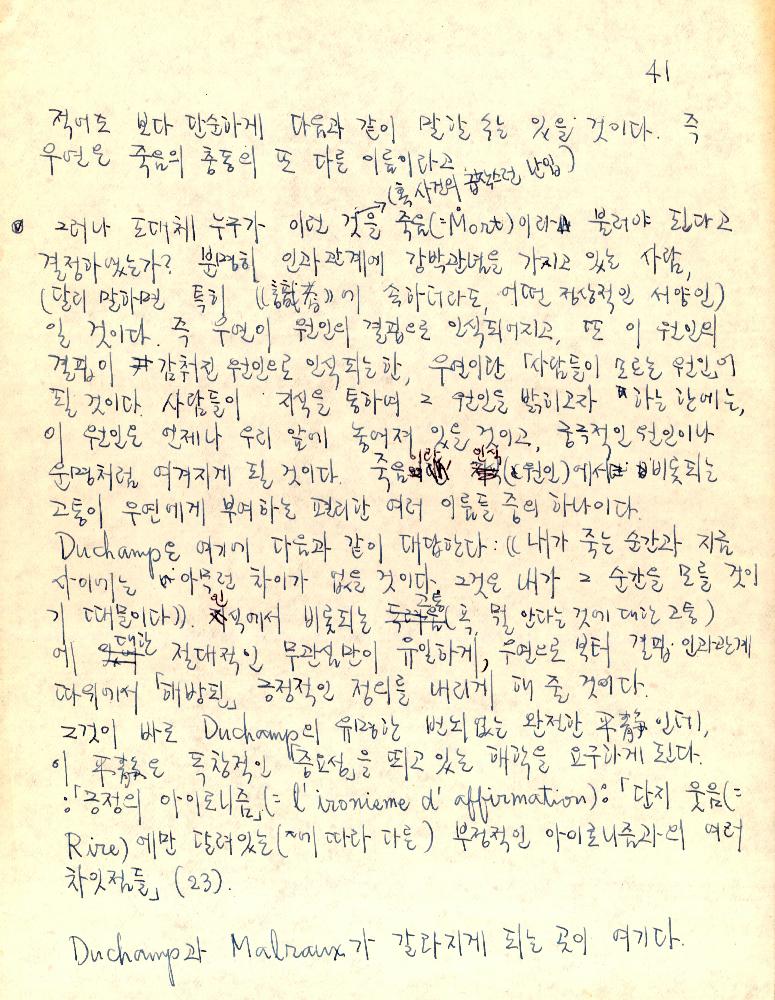 41
적어도 보다 단순하게 다음과 같이 말할 수는 있을 것이다. 즉
우연은 죽음의 충동의 또 다른 이름이라고
(혹 사건의 갑작스런 난입)
그러나 도대체 누구가 이런 것을 죽음(=Mort)이라 불러야 된다고
결정하였는가? 분명히 인과관계에 강박관념을 가지고 있는 사람,
(달리 말하면 특히 《識者》에 속하더라도, 어떤 정상적인 서양인)
일 것이다. 즉 우연이 원인의 결핍으로 인식되어지고, 또 이 원인의
결핍이 감춰진 원인으로 인식되는한, 우연이란 「사람들이 모르는 원인」이
될 것이다. 사람들이 지식을 통하여 그 원인을 밝히고자 하는 한에는,
이 원인은 언제나 우리 앞에 놓여져 있을 것이고, 궁극적인 원인이나
운명처럼 여겨지게 될 것이다. 죽음이란 인식(원인)에서 비롯되는
고통이 우연에게 부여하는 편리한 여러 이름들 중의 하나이다.
Duchamp은 여기에 다음과 같이 대답한다: ((내가 죽는 순간과 지금
사이에는 아무런 차이가 없을 것이다. 그것은 내가 그 순간을 모를 것이
기 때문이다)). 인식에서 비롯되는 고통(혹, 뭘 안다는 것에 대한 고통)
에 대한 절대적인 무관심만이 유일하게, 우연으로 부터 결핍·인과관계
따위에서 「해방된」 긍정적인 정의를 내리게 해 줄 것이다.
그것이 바로 Duchamp의 유명한 번뇌없는 완전한 平靜인데,
이 平靜은 독창적인 「중요성」을 띄고 있는 해학을 요구하게 된다.
:「긍정의 아이로니즘」(= l' ironieme d' affirmation): 「단지 웃음(=
Rire)에만 달려있는 (에 따라 다른) 부정적인 아이로니즘과의 여러
차잇점들」 (23).
Duchamp과 Malraux가 갈라지게 되는 곳이 여기다.